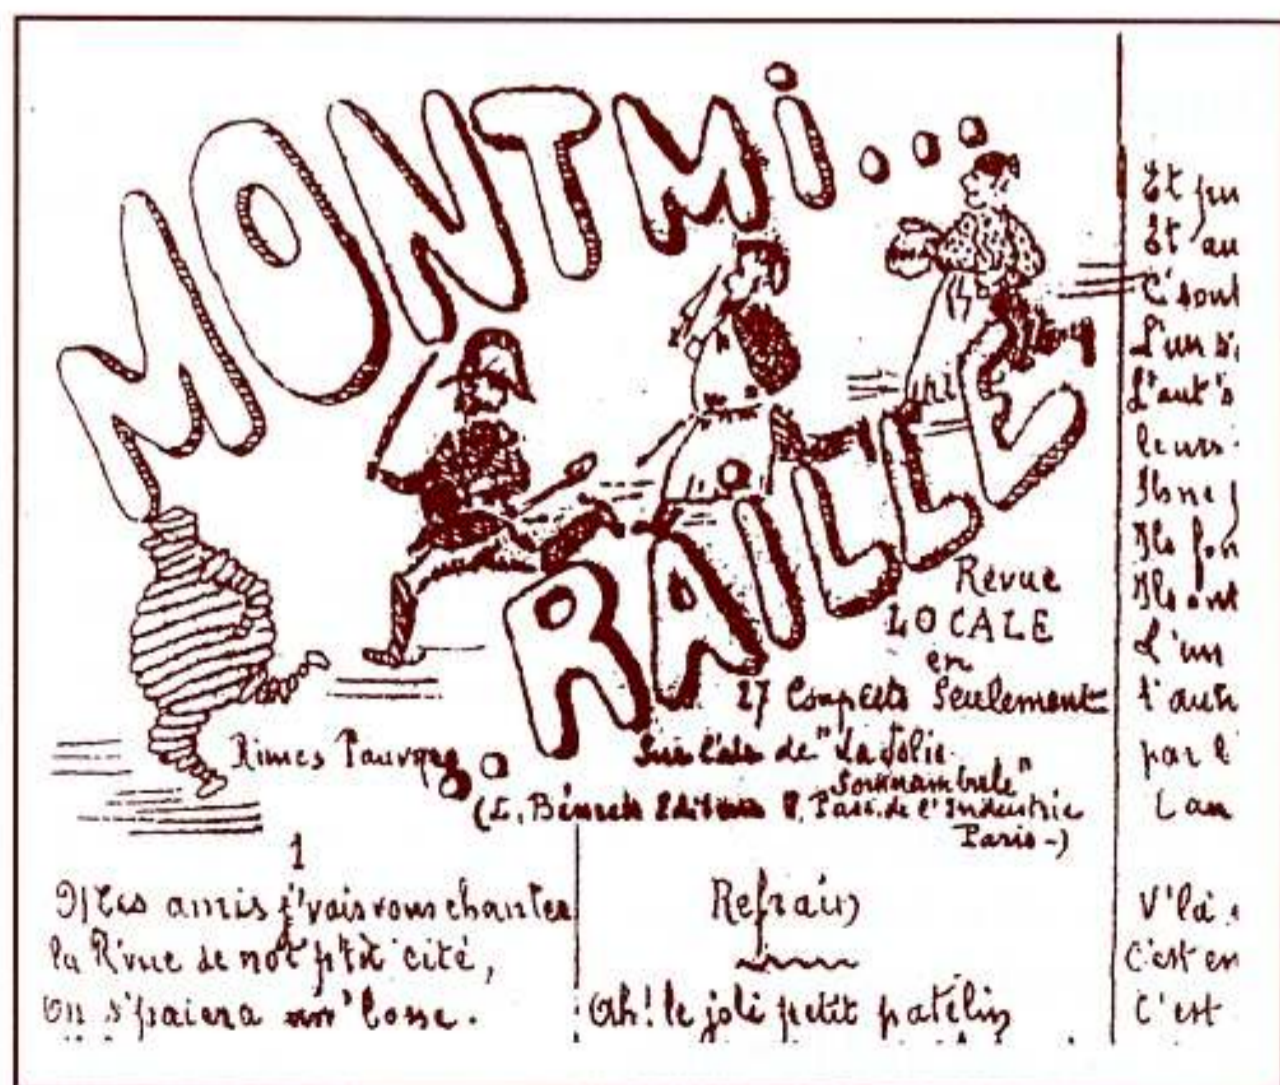 MONTMi...
RAILLE
Revue
LOCALE
en
27 Couplets Seulement
Rimes Pauvres
Sur l'air de "La Jolie
Somnambule"
(L. Bénech Editeur Pass. de l'Industrie
Paris-)
1
Mes amis j'vais vous chanter
la R'vue de not' p'tit' cité,
On s'paiera un' bosse.
Refrain
Ah! le joli petit patelin
Et
Et au
C'sont
L'un
L'aut's
leurs
Ils ne
Ils
Ils ont
L'un
l'aut
par l
V'là
C'est en
C'est